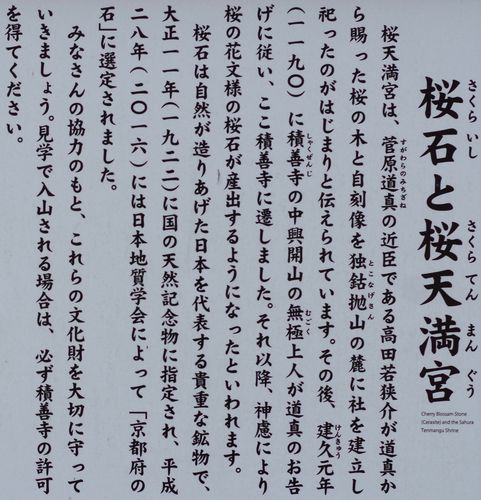 桜石と桜天満宮
さくら いし さくら てん まん ぐう
Cherry Blossom Stone
(Cerasite) and the Sakura
Tenmangu Shrine
桜天満宮は、菅原道真の近臣である高田若狭介が道真か
すがわらのみちざね
ら賜った桜の木と自刻像を独鈷抛山の麓に社を建立し
とこなげさん
祀ったのがはじまりと伝えられています。その後、建久元年
けんきゅう
(一一九〇)に積善寺の中興開山の無極上人が道真のお告
しゃくぜんじ
むごく
げに従い、ここ積善寺に遷しました。それ以降、神慮により
桜の花文様の桜石が産出するようになったといわれます。
桜石は自然が造りあげた日本を代表する貴重な鉱物で、
大正一一年(一九二二)に国の天然記念物に指定され、平成
二八年(二〇一六)には日本地質学会によって「京都府の
石」に選定されました。
みなさんの協力のもと、これらの文化財を大切に守って
いきましょう。見学で入山される場合は、必ず積善寺の許可
を得てください。